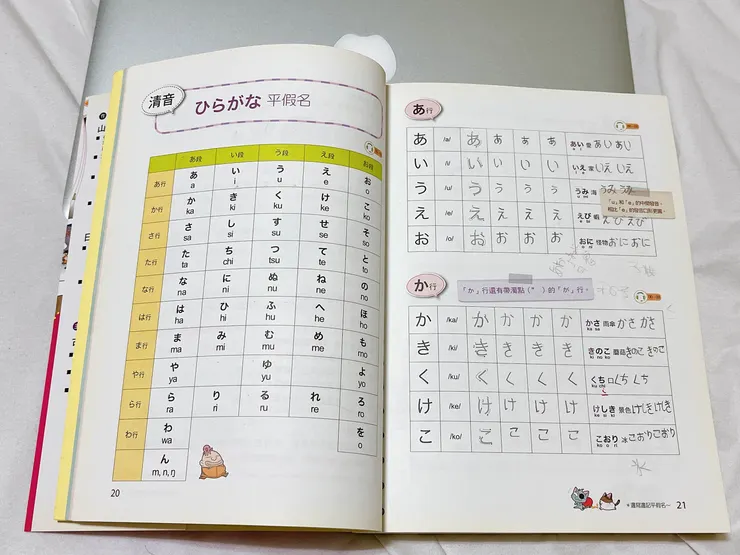 清音
ひらがな 平假名
あ段 い段 う段 え段 お段
あ行 あ い う え お
a i u e o
か行 か き く け こ
ka ki ku ke ko
さ行 さ し す せ そ
sa si su se so
た行 た ち つ て と
ta chi tsu te to
な行 な に ぬ ね の
na ni nu ne no
は行 は ひ ふ へ ほ
ha hi hu he ho
ま行 ま み む め も
ma mi mu me mo
や行 や ゆ よ
ya yu yo
ら行 ら り る れ ろ
ra ri ru re ro
わ行 わ を
wa o
ん
m, n, ŋ
20
あ行
あ /a/ あ あ あ あ あい 愛 あい あい
い /i/ い い い い いえ 家 いえ いえ
う /u/ う う う う うみ 海 うみ うみ
え /e/ え え え え えび 蝦 えび えび
お /o/ お お お お おに 怪物 おに おに
か行
「か」行還有帶濁點（゛）的「が」行。
か /ka/ か か か か かさ 雨傘 かさ かさ
ka sa
き /ki/ き き き き きのこ 蘑菇 きのこ きのこ
ki no ko
く /ku/ く く く く くち 口 くち くち
ku chi
け /ke/ け け け け けしき 景色 けしき けしき
ke si ki
こ /ko/ こ こ こ こ こおり 冰 こおり こおり
ko o ri
21